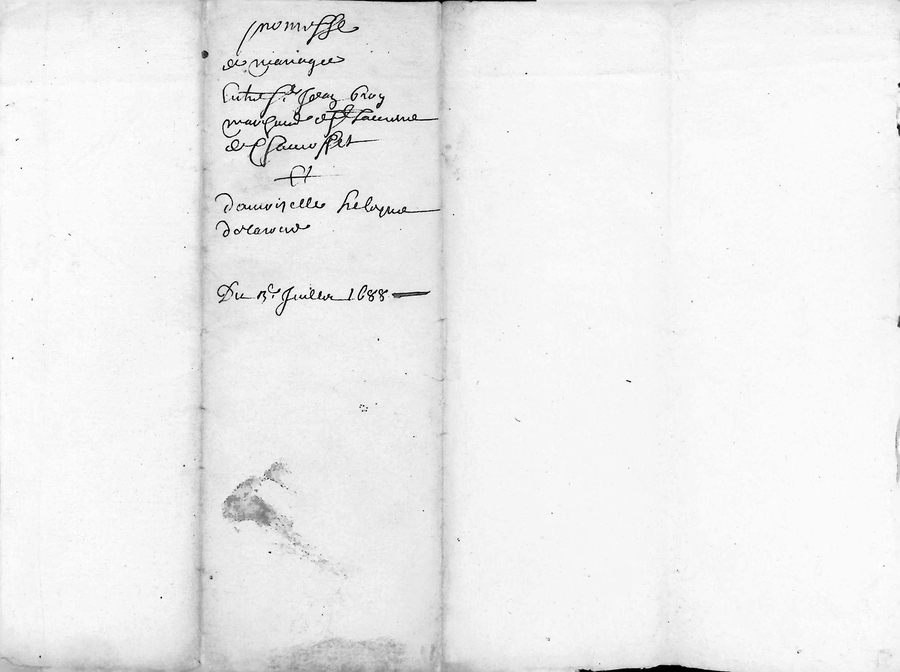 promesse
de mariage
Entre Sr Jean Gray
marchand de St Laurens
de Chamousset
Et
damoizelle helayne
delaroue
Du 13e Juillet 1688